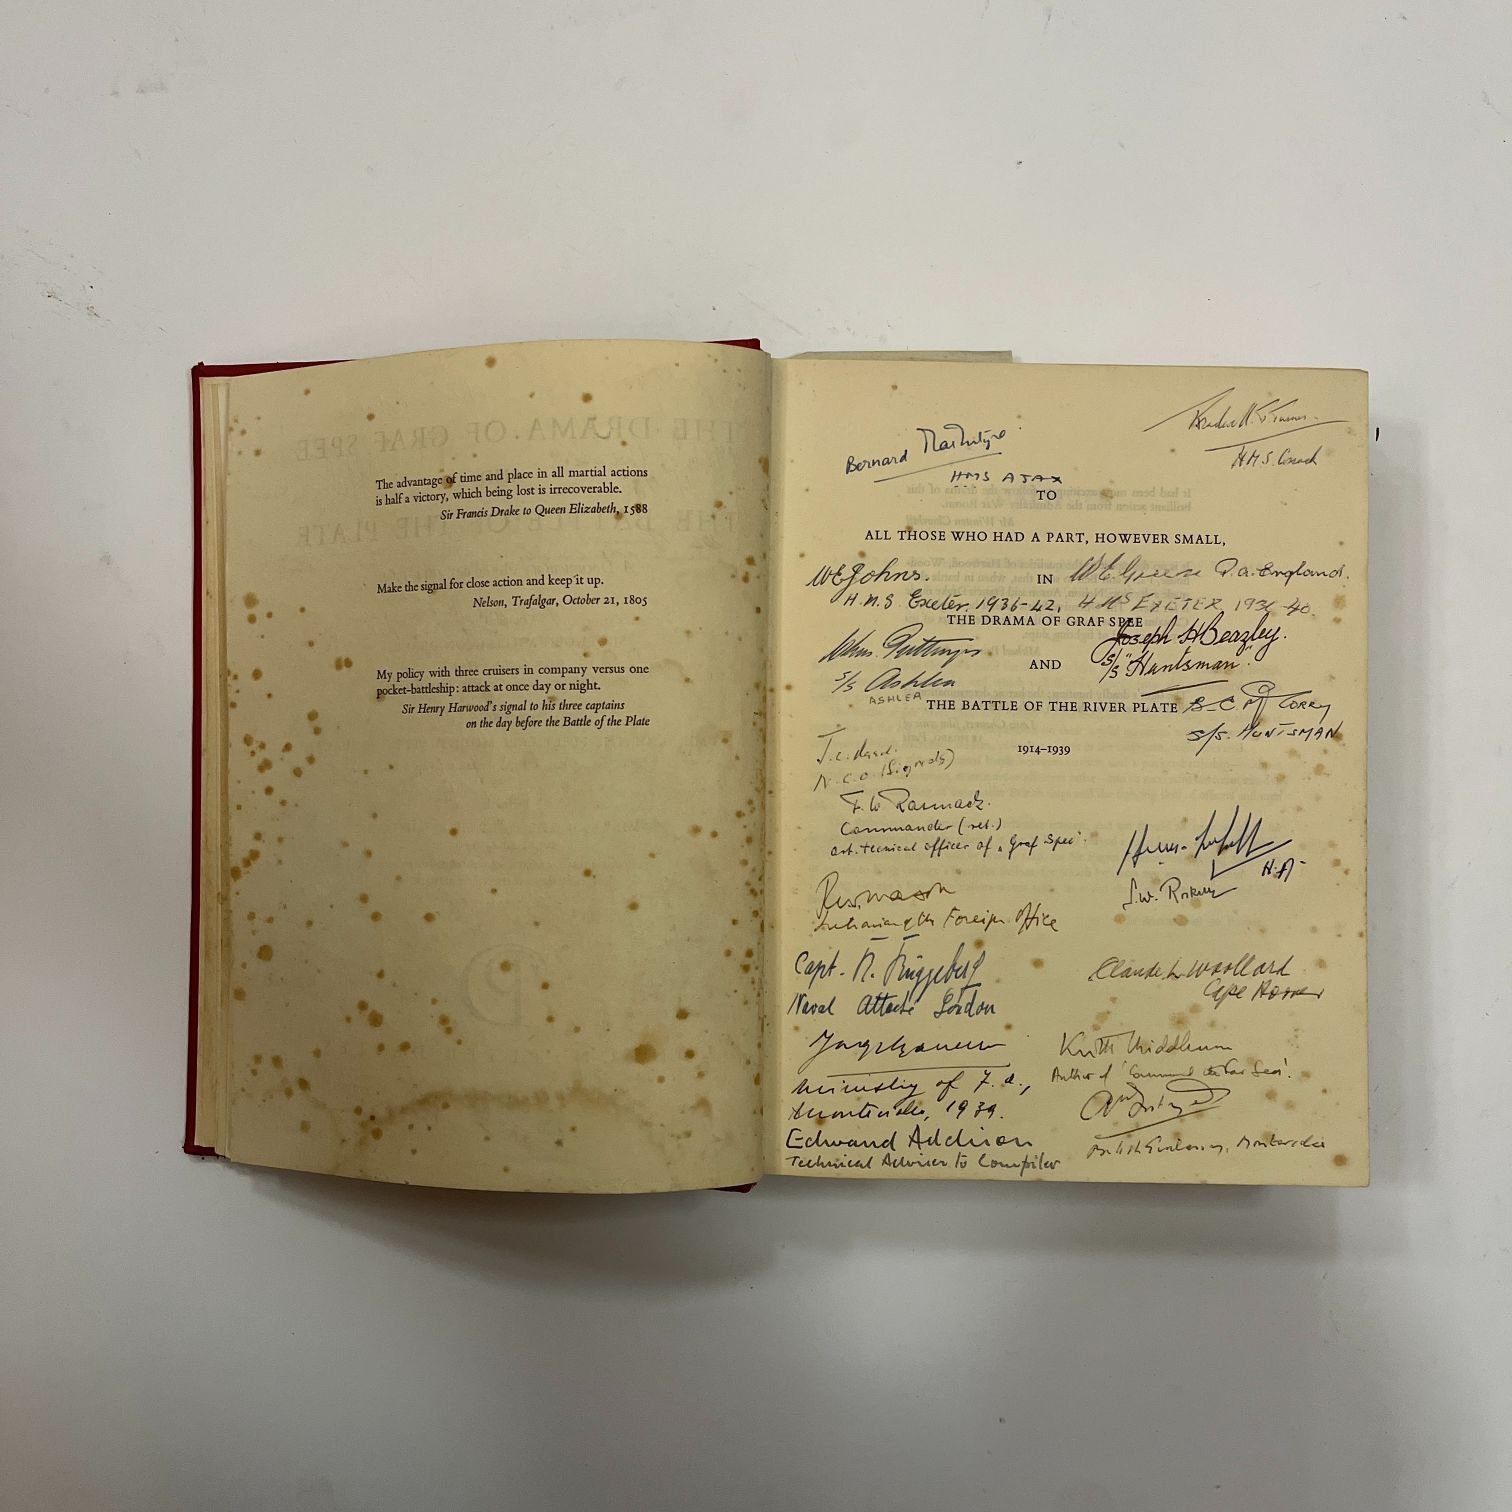 The advantage of time and place in all martial actions
is half a victory, which being lost is irrecoverable.
Sir Francis Drake to Queen Elizabeth, 1588
Make the signal for close action and keep it up.
Nelson, Trafalgar, October 21, 1805
My policy with three cruisers in company versus one
pocket-battleship: attack at once day or night.
Sir Henry Harwood's signal to his three captains
on the day before the Battle of the Plate
H.M.S.
Bernard MacIntyre
HMS AJAX
TO
ALL THOSE WHO HAD A PART, HOWEVER SMALL,
WE Johns.
IN
W.E. England.
H.M.S. Exeter. 1936-42.
HMS EXETER 1936-40.
THE DRAMA OF GRAF SPEE
Joseph H Beazley.
AND
S/S "Huntsman".
S/S Ashlea
ASHLEA
THE BATTLE OF THE RIVER PLATE
CORRY
S/S. HUNTSMAN
1914–1939
N.C.O. (Signals)
F. W. Rasmack.
Commander (ret.)
technical officer of "Graf Spee".
H.A.
S.W. Roskill
of the Foreign Office
Capt.
Naval Attaché London
Claude L Woollard
Cape Horner
Keith Middlemas
Author of 'Command the Far Seas'.
Ministry of F.A.,
Montevideo, 1939.
Edward Addison
Technical Adviser to Compiler
British Embassy, Montevideo